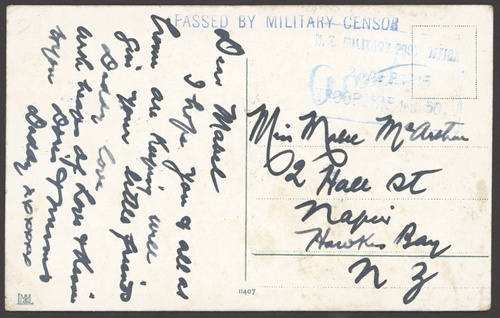 PASSED BY MILITARY CENSOR
N.Z. MILITARY POST OFFICE
TROOPSHIP No. 50
Dear Mabel
I hope you & all at
home are keeping well
Give your little friends
Daddy love
with heaps of love & kisses
to you Doris & Mumms
Daddy xxxxxx
Miss McArthur
2 Hall St
Napier
Hawkes Bay
N Z
11407